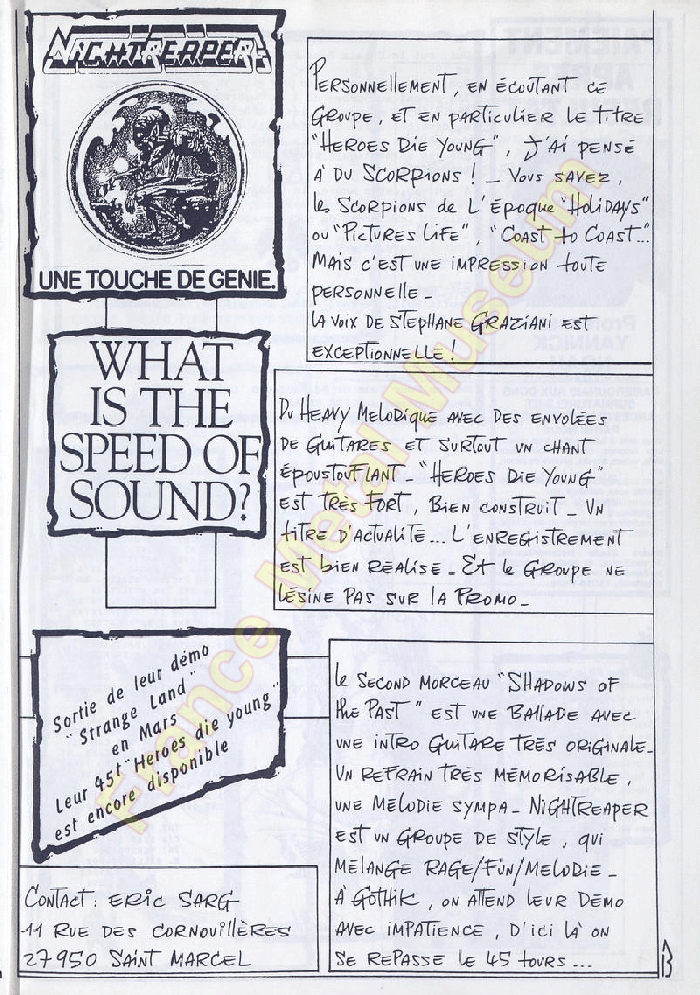 NIGHTREAPER
UNE TOUCHE DE GENIE.
PERSONNELLEMENT, EN ÉCOUTANT CE
GROUPE, ET EN PARTICULIER LE TITRE
"HEROES DIE YOUNG", J'AI PENSÉ
À DU SCORPIONS ! _ VOUS SAVEZ,
LES SCORPIONS DE L'ÉPOQUE "HOLIDAYS"
OU "PICTURES LIFE", "COAST TO COAST"...
MAIS C'EST UNE IMPRESSION TOUTE
PERSONNELLE _
LA VOIX DE STEPHANE GRAZIANI EST
EXCEPTIONNELLE !
WHAT
IS THE
SPEED OF
SOUND?
DU HEAVY MELODIQUE AVEC DES ENVOLÉES
DE GUITARES ET SURTOUT UN CHANT
ÉPOUSTOUFLANT _ "HEROES DIE YOUNG"
EST TRÈS FORT, BIEN CONSTRUIT _ UN
TITRE D'ACTUALITÉ... L'ENREGISTREMENT
EST BIEN RÉALISÉ _ ET LE GROUPE NE
LÉSINE PAS SUR LA PROMO _
Sortie de leur démo
"Strange Land"
en Mars
Leur 45t "Heroes die young"
est encore disponible
LE SECOND MORCEAU "SHADOWS OF
THE PAST" EST UNE BALLADE AVEC
UNE INTRO GUITARE TRÈS ORIGINALE _
UN REFRAIN TRÈS MÉMORISABLE,
UNE MÉLODIE SYMPA _ NIGHTREAPER
EST UN GROUPE DE STYLE, QUI
MÉLANGE RAGE/FUN/MELODIE _
À GOTHIK, ON ATTEND LEUR DÉMO
AVEC IMPATIENCE, D'ICI LÀ ON
SE REPASSE LE 45 TOURS ...
CONTACT : ERIC SARG
11 RUE DES CORNOUILLÈRES
27950 SAINT MARCEL
13
France Metal Museum